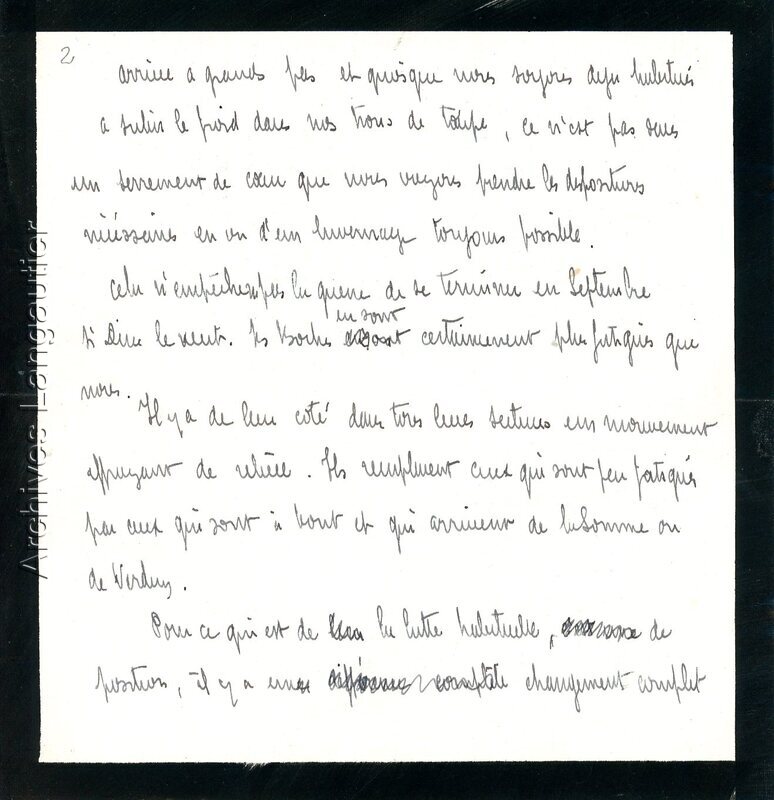 2
arrive a grands pas et quoique nous soyons deja habitués
a subir le froid dans nos trous de taupe, ce n'est pas sans
un serrement de cœur que nous voyons prendre les dispositions
nécessaires en vu d'un hivernage toujours possible.
cela n'empêchera pas la guerre de se terminer en Septembre
si Dieu le veut. Les Boches en sont certainement plus fatigués que
nous.
Il y a de leur coté dans tous leurs secteurs un mouvement
effrayant de relève. Ils remplacent ceux qui sont peu fatigués
par ceux qui sont à bout et qui arrivent de la Somme ou
de Verdun.
Pour ce qui est de la lutte habituelle, de
position, il y a un changement complet
Archives Langautier